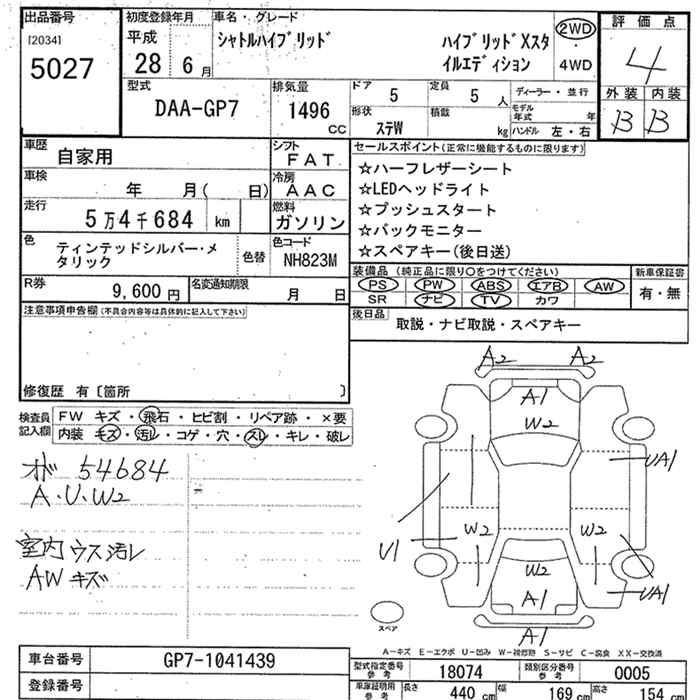 出品番号
[2034]
5027
初度登録年月
平成
28 6 月
車名・グレード
シャトルハイブリッド
ハイブリッドXスタ
イルエディション
2WD
4WD
評価点
4
外装 内装
B B
型式
DAA-GP7
排気量
1496
CC
ドア
5
定員
5 人
形状
ステW
積載
kg
ディーラー・並行
モデル
年式 年
ハンドル 左・右
車歴
自家用
シフト
FAT
車検
年 月( 日)
冷房
AAC
走行
5万4千684 km
燃料
ガソリン
色
ティンテッドシルバー・メ
タリック
色替
色コード
NH823M
R券
9,600 円
名変通知期限
月 日
セールスポイント(正常に機能するものに限ります)
☆ハーフレザーシート
☆LEDヘッドライト
☆プッシュスタート
☆バックモニター
☆スペアキー(後日送)
装備品 (純正品に限り○をつけてください)
PS PW ABS エアB AW
SR ナビ TV カワ
新車保証書
有・無
後日品
取説・ナビ取説・スペアキー
注意事項申告欄(不具合内容等は具体的に記入して下さい)
修復歴 有〔箇所 〕
検査員
記入欄
FW キズ・飛石・ヒビ割・リペア跡・×要
内装 キズ・汚レ・コゲ・穴・スレ・キレ・破レ
オド 54684
A・U・W2
室内 ウス汚レ
AW キズ
A2 A2
A1
W2
UA1
W2 W2
U1
W2
A1
UA1
A1
スペア
A-キズ E-エクボ U-凹み W-補修跡 S-サビ C-腐食 XX-交換済
車台番号
GP7-1041439
登録番号
型式指定番号
参考
18074
類別区分番号
参考
0005
車庫証明用
参考
長さ 440 cm 幅 169 cm 高さ 154 cm